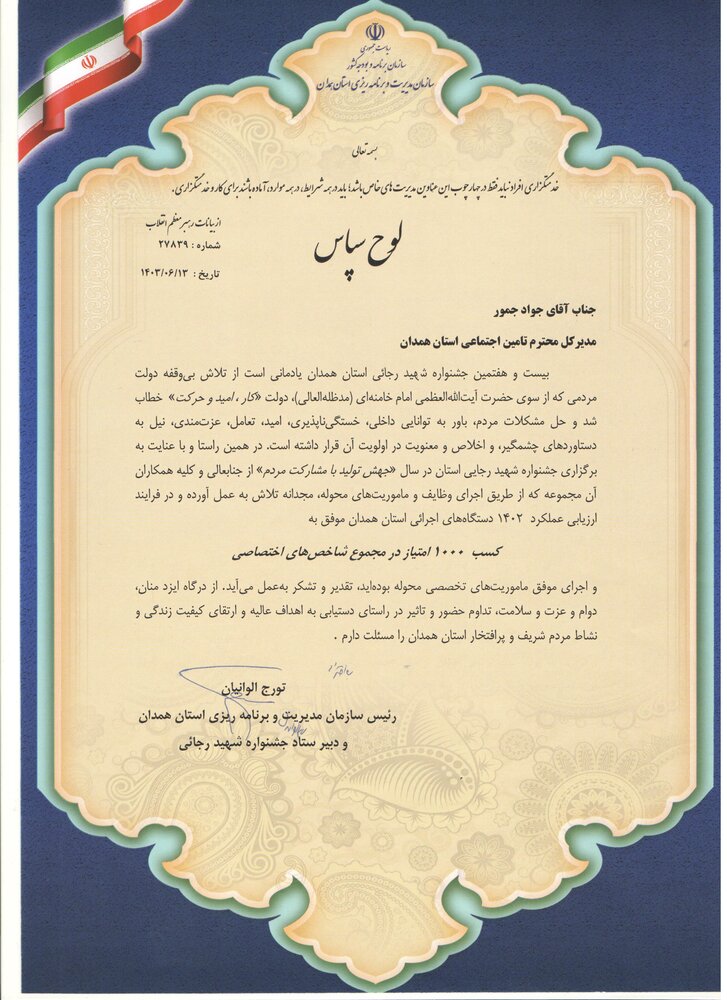 ریاست جمهوری
سازمان برنامه و بودجه کشور
سازمان مدیریت و برنامه ریزی استان همدان
بسمه تعالی
خدمتگزاری افراد نباید فقط در چهارچوب این عناوین مدیریت‌های خاص باشد؛ باید در همه شرایط، در همه موارد، آماده باشند برای کار و خدمتگزاری.
از بیانات رهبر معظم انقلاب
لوح سپاس
شماره : ۲۷۸۳۹
تاریخ : ۱۴۰۳/۰۶/۱۳
جناب آقای جواد جمور
مدیرکل محترم تامین اجتماعی استان همدان
بیست و هفتمین جشنواره شهید رجائی استان همدان یادمانی است از تلاش بی‌وقفه دولت
مردمی که از سوی حضرت آیت‌الله‌العظمی امام خامنه‌ای (مدظله‌العالی)، دولت «کار ، امید و حرکت» خطاب
شد و حل مشکلات مردم، باور به توانایی داخلی، خستگی‌ناپذیری، امید، تعامل، عزت‌مندی، نیل به
دستاوردهای چشمگیر، و اخلاص و معنویت در اولویت آن قرار داشته است. در همین راستا و با عنایت به
برگزاری جشنواره شهید رجایی استان در سال «جهش تولید با مشارکت مردم» از جنابعالی و کلیه همکاران
آن مجموعه که از طریق اجرای وظایف و ماموریت‌های محوله، مجدانه تلاش به عمل آورده و در فرایند
ارزیابی عملکرد ۱۴۰۲ دستگاه‌های اجرائی استان همدان موفق به
کسب ۱۰۰۰ امتیاز در مجموع شاخص‌های اختصاصی
و اجرای موفق ماموریت‌های تخصصی محوله بوده‌اید، تقدیر و تشکر به‌عمل می‌آید. از درگاه ایزد منان،
دوام و عزت و سلامت، تداوم حضور و تاثیر در راستای دستیابی به اهداف عالیه و ارتقای کیفیت زندگی و
نشاط مردم شریف و پرافتخار استان همدان را مسئلت دارم .
تورج الوانیان
رئیس سازمان مدیریت و برنامه ریزی استان همدان
و دبیر ستاد جشنواره شهید رجائی